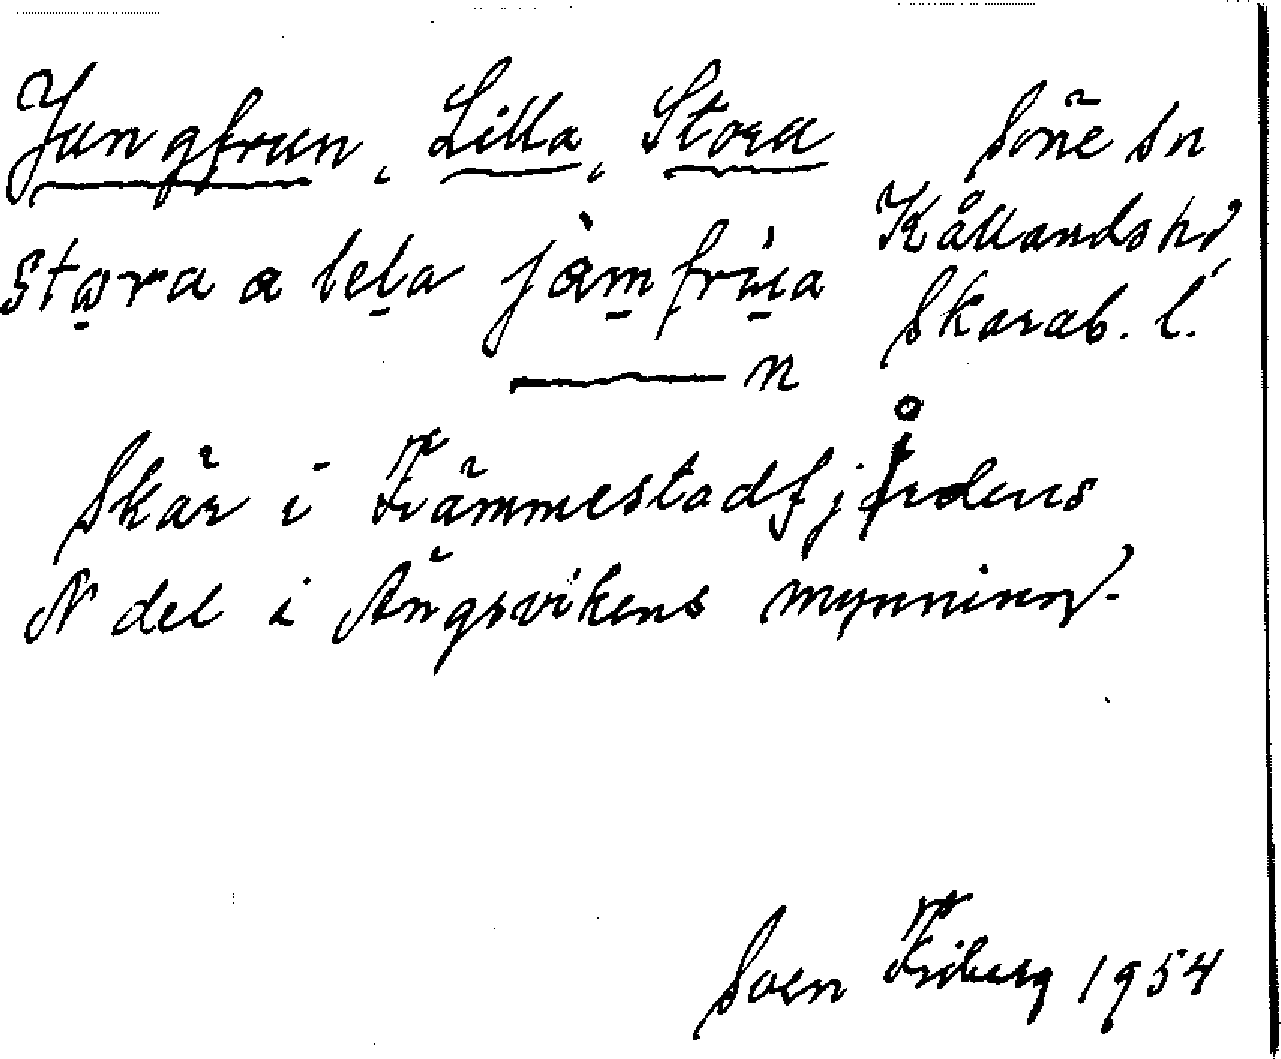 Jungfrun, Lilla, Stora
Stora a lela jàmfrúa
n
Söne sn
Kållands hd,
Skarab. l.
Skär i Främmestadfjårdens
N del i Ängsvikens mynning.
Sven Friberg 1954